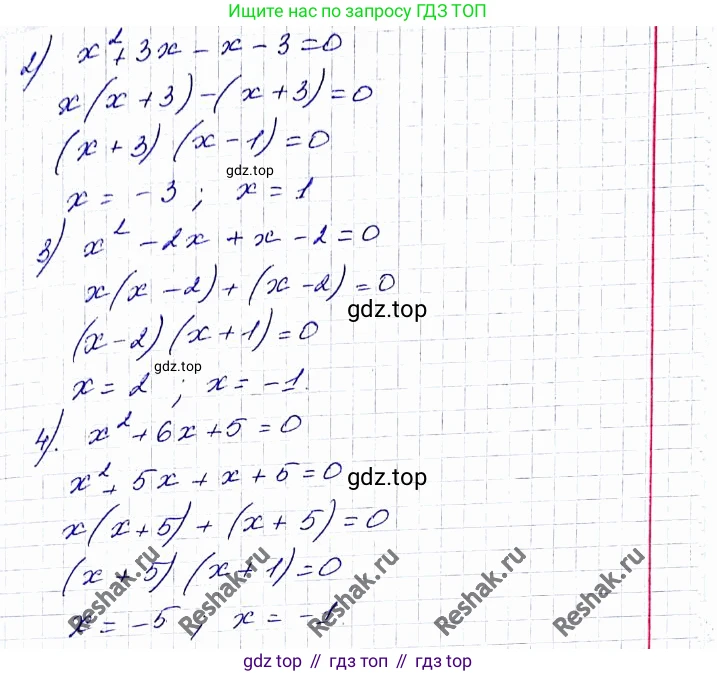 Ищите нас по запросу ГДЗ ТОП
2) x² + 3x - x - 3 = 0
x(x + 3) - (x + 3) = 0
(x + 3) (x - 1) = 0
gdz.top
x = - 3 ; x = 1
3) x² - 2x + x - 2 = 0
x(x - 2) + (x - 2) = 0
gdz.top
(x - 2) (x + 1) = 0
gdz.top
x = 2 ; x = - 1.
4). x² + 6x + 5 = 0
x² + 5x + x + 5 = 0
gdz.top
x(x + 5) + (x + 5) = 0
(x + 5) (x + 1) = 0
Reshak.ru Reshak.ru Reshak.ru Reshak.ru Reshak.ru
x = - 5 , x = - 1.
gdz top // гдз топ // gdz top